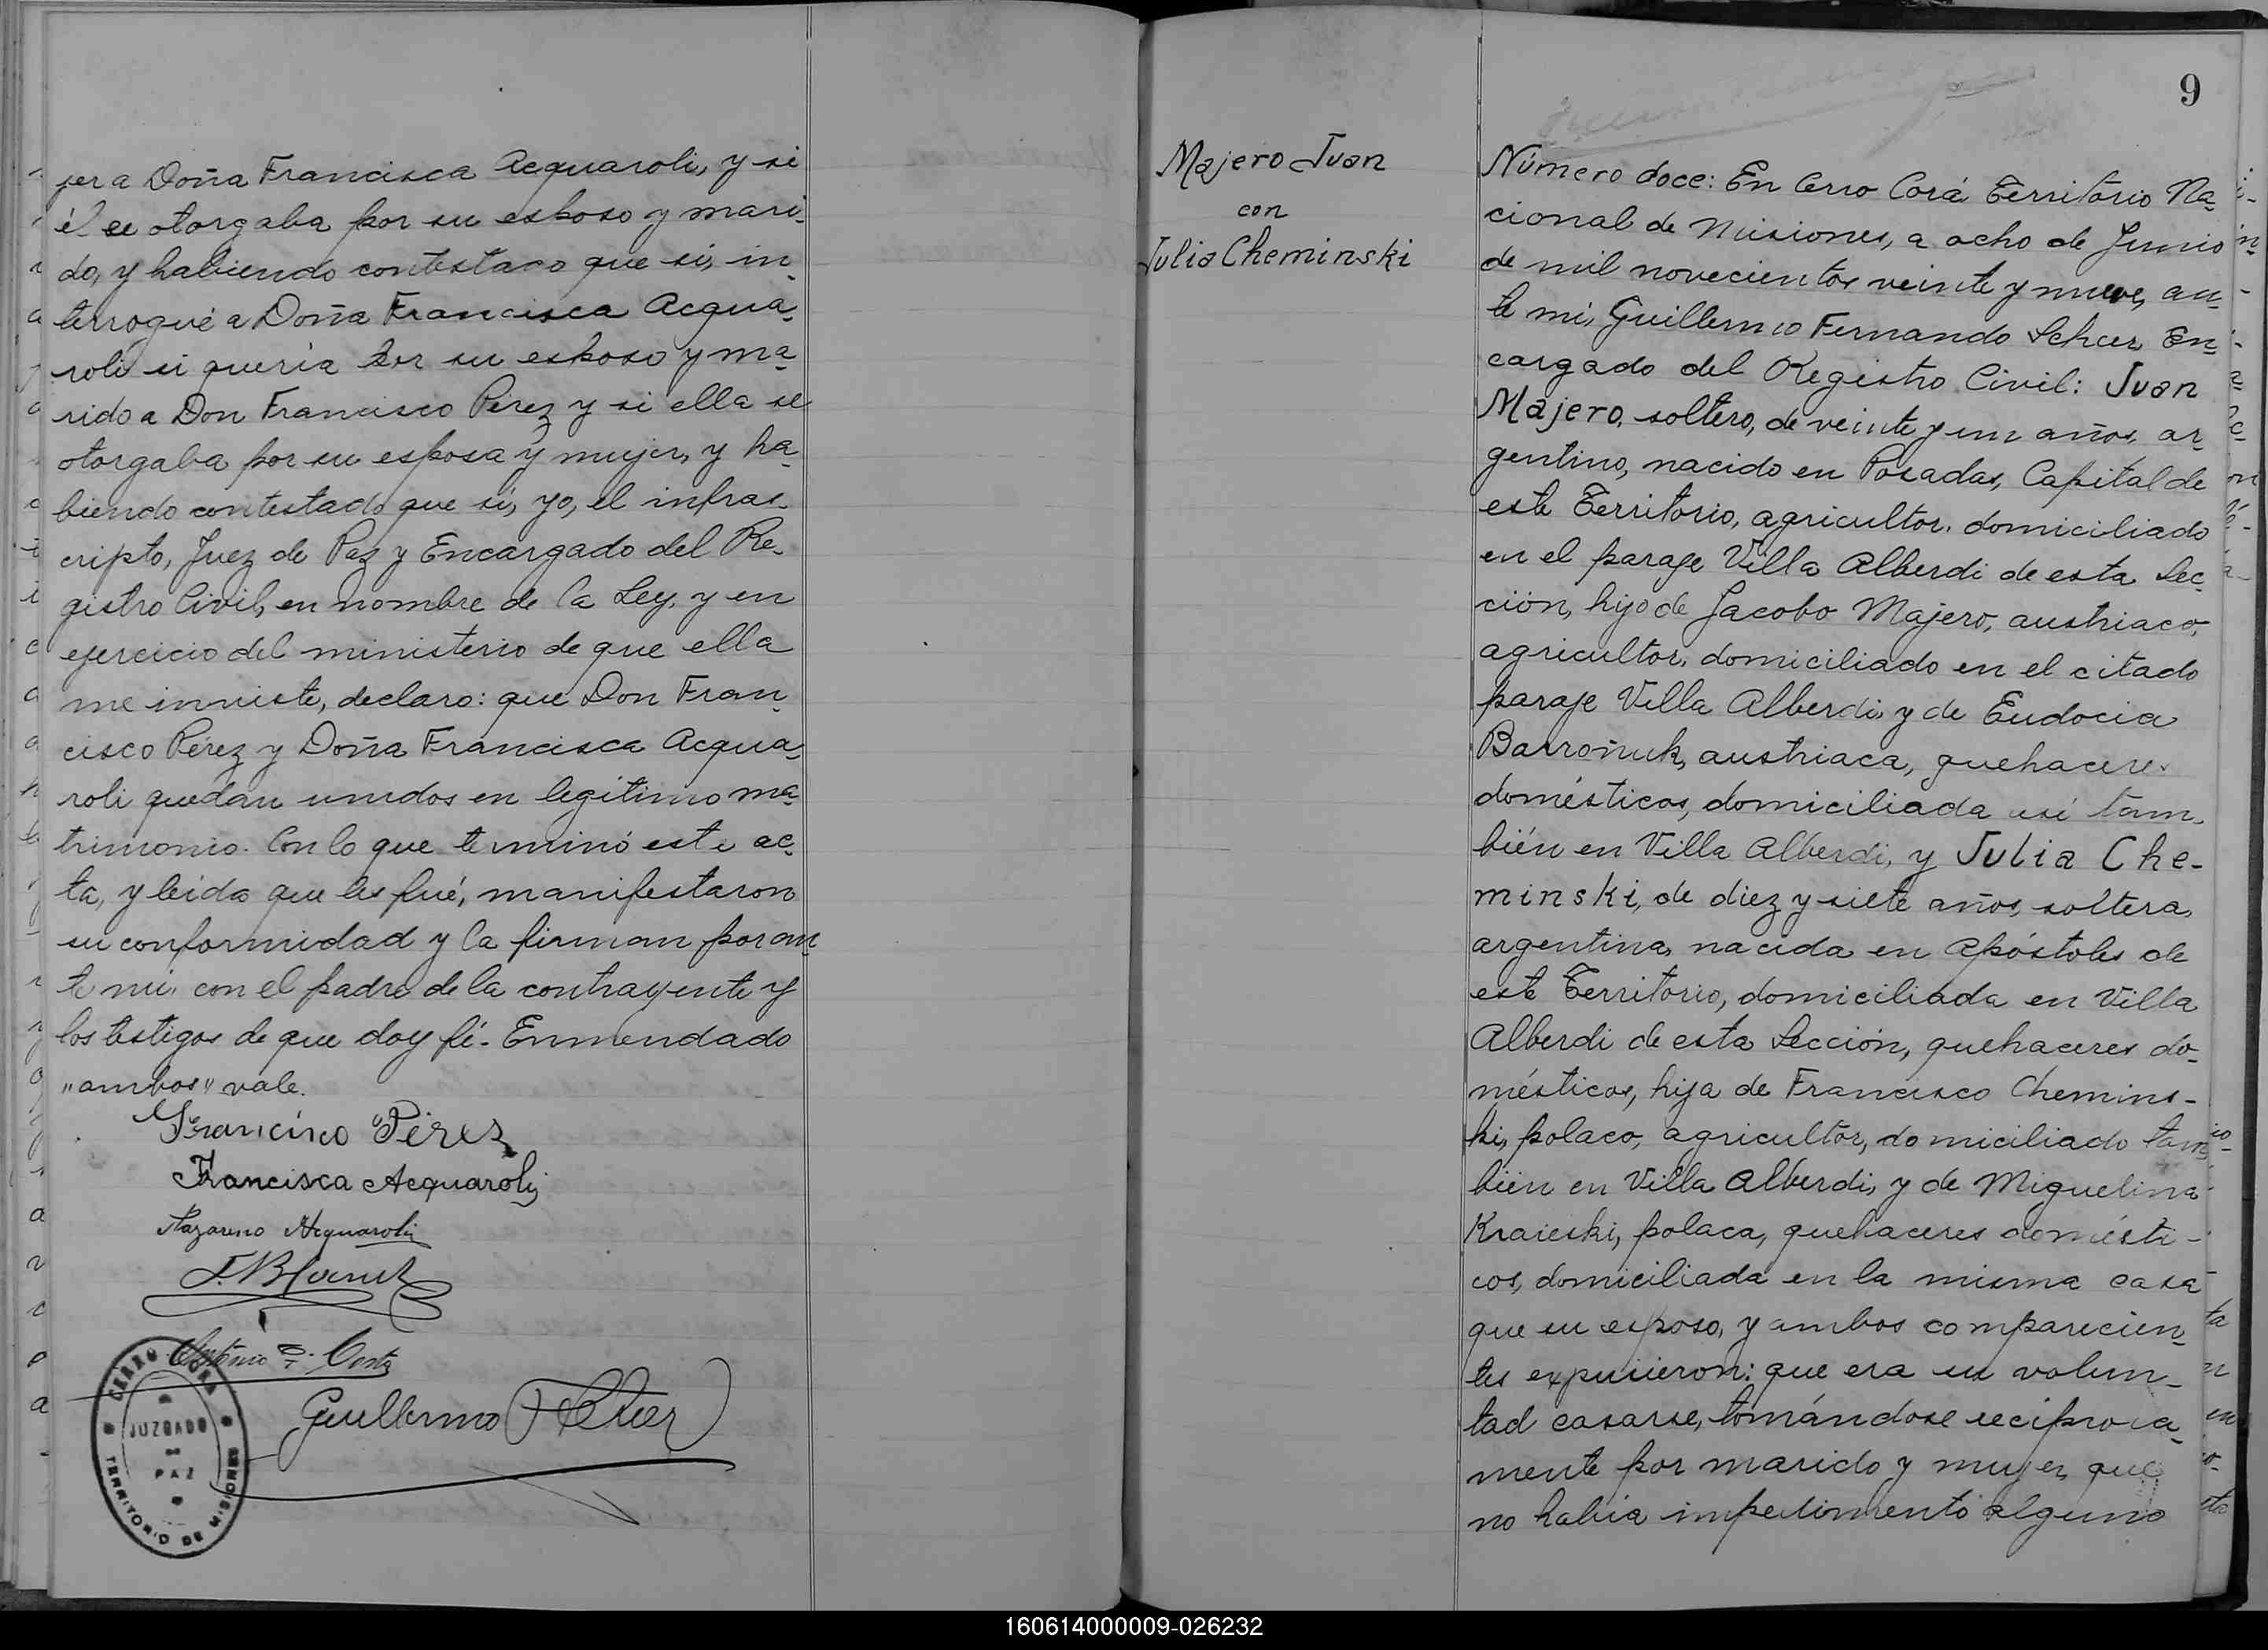 jer a Doña Francisca Acquaroli, y si
él se otorgaba por su esposo y mari-
do, y habiendo contestado que sí, in-
terrogué a Doña Francisca Acqua-
roli si quería por su esposo y ma-
rido a Don Francisco Pérez y si ella se
otorgaba por su esposa y mujer, y ha-
biendo contestado que sí, yo, el infras-
cripto, Juez de Paz y Encargado del Re-
gistro Civil, en nombre de la Ley, y en
ejercicio del ministerio de que ella
me inviste, declaro: que Don Fran-
cisco Pérez y Doña Francisca Acqua-
roli quedan unidos en legítimo ma-
trimonio. Con lo que terminó este ac-
ta, y leída que les fué, manifestaron
su conformidad y la firman por an-
te mí, con el padre de la contrayente y
los testigos de que doy fé. Enmendado
"ambos" vale.
Francisco Pérez
Francisca Acquaroli
Nazareno Acquaroli
Antonio Costa
Guillermo F Scher
CERRO CORA
JUZGADO
DE
PAZ
TERRITORIO DE MISIONES
9
Majero Juan
con
Julia Cheminski
Número doce: En Cerro Corá Territorio Na-
cional de Misiones, a ocho de Junio
de mil novecientos veinte y nueve, an-
te mí, Guillermo Fernando Scher, En-
cargado del Registro Civil: Juan
Majero, soltero, de veinte y un años, ar-
gentino, nacido en Posadas, Capital de
este Territorio, agricultor, domiciliado
en el paraje Villa Alberdi de esta Sec-
ción, hijo de Jacobo Majero, austriaco,
agricultor, domiciliado en el citado
paraje Villa Alberdi, y de Eudocia
Barroñuk, austriaca, quehaceres
domésticos, domiciliada así tam-
bién en Villa Alberdi, y Julia Che-
minski, de diez y siete años, soltera,
argentina, nacida en Apóstoles de
este Territorio, domiciliada en Villa
Alberdi de esta Sección, quehaceres do-
mésticos, hija de Francisco Chemins-
ki, polaco, agricultor, domiciliado tam-
bién en Villa Alberdi, y de Miguelina
Kraieski, polaca, quehaceres domésti-
cos, domiciliada en la misma casa
que su esposo, y ambos comparecien-
tes expusieron: que era su volun-
tad casarse, tomándose recíproca-
mente por marido y mujer, que
no había impedimento alguno
160614000009-026232